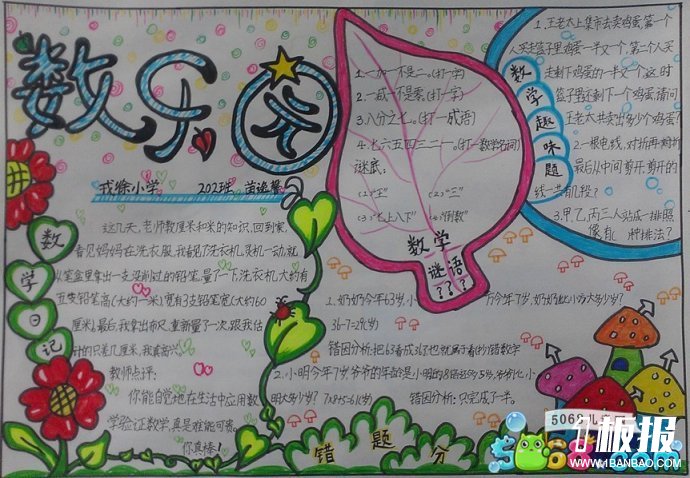 数乐园
戎徐小学 202班
数学日记
这几天,老师教厘米和米的知识,回到家,
看见妈妈在洗衣服,我看了洗衣机灵机一动,就
从笔盒里拿出一支没削过的铅笔,量了一下洗衣机大约有
五支铅笔高(大约一米)宽有3支铅笔宽(大约60
厘米)最后,我拿出布尺,重新量了一次,跟我估
计的只差几厘米,我真高兴。
教师点评:
你能自觉地在生活中应用数
学验证数学,真是难能可贵。
你真棒!
1.一加一不是二。(打一字)
2.一减一不是零。(打一字)
3.八分之七。(打一成语)
4.七六五四三二一。(打一数学名词)
谜底:
(1)“王” (2)“三”
(3)“七上八下” (4)“倒数”
数学
谜语
???
数学趣味题
1.王老太上集市去卖鸡蛋,第一个
人买走篮子里鸡蛋一半又一个,第二个人买
走剩下鸡蛋的一半又一个,这时
篮子里还剩下一个鸡蛋,请问
王老太共卖出多少个鸡蛋?
2.一根电线,对折再对折
最后从中间剪开,剪开的
线一共有几段?
3.甲、乙、丙三人站成一排照
像,有 种排法?
1.奶奶今年63岁,小 今年7岁,奶奶比小 大多少岁?
36-7=29(岁)
错因分析:把63看成36了也就属于看的错数字
2.小明今年7岁,爷爷的年龄是小明的8倍 5岁,爷爷比小
明大多少岁? 7×8+5=61(岁) 错因分析:只完成了一半。
错题分
5068儿
1板报
WWW.1BANBAO.COM